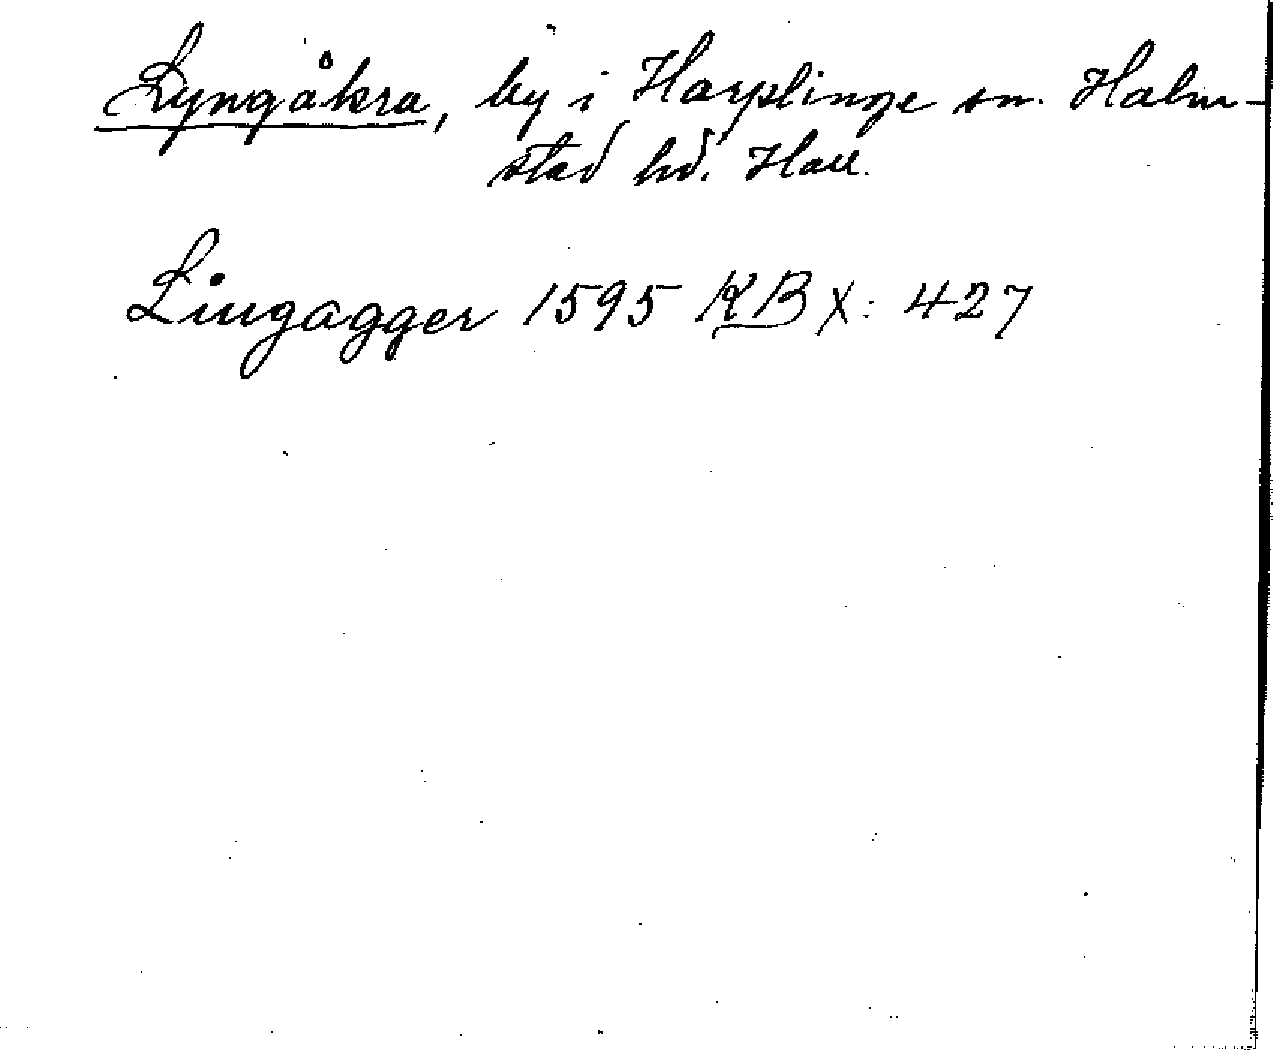 Lyngåkra, by i Harplinge sn. Halm-
stad hd. Hall.
Lingagger 1595 KB X: 427